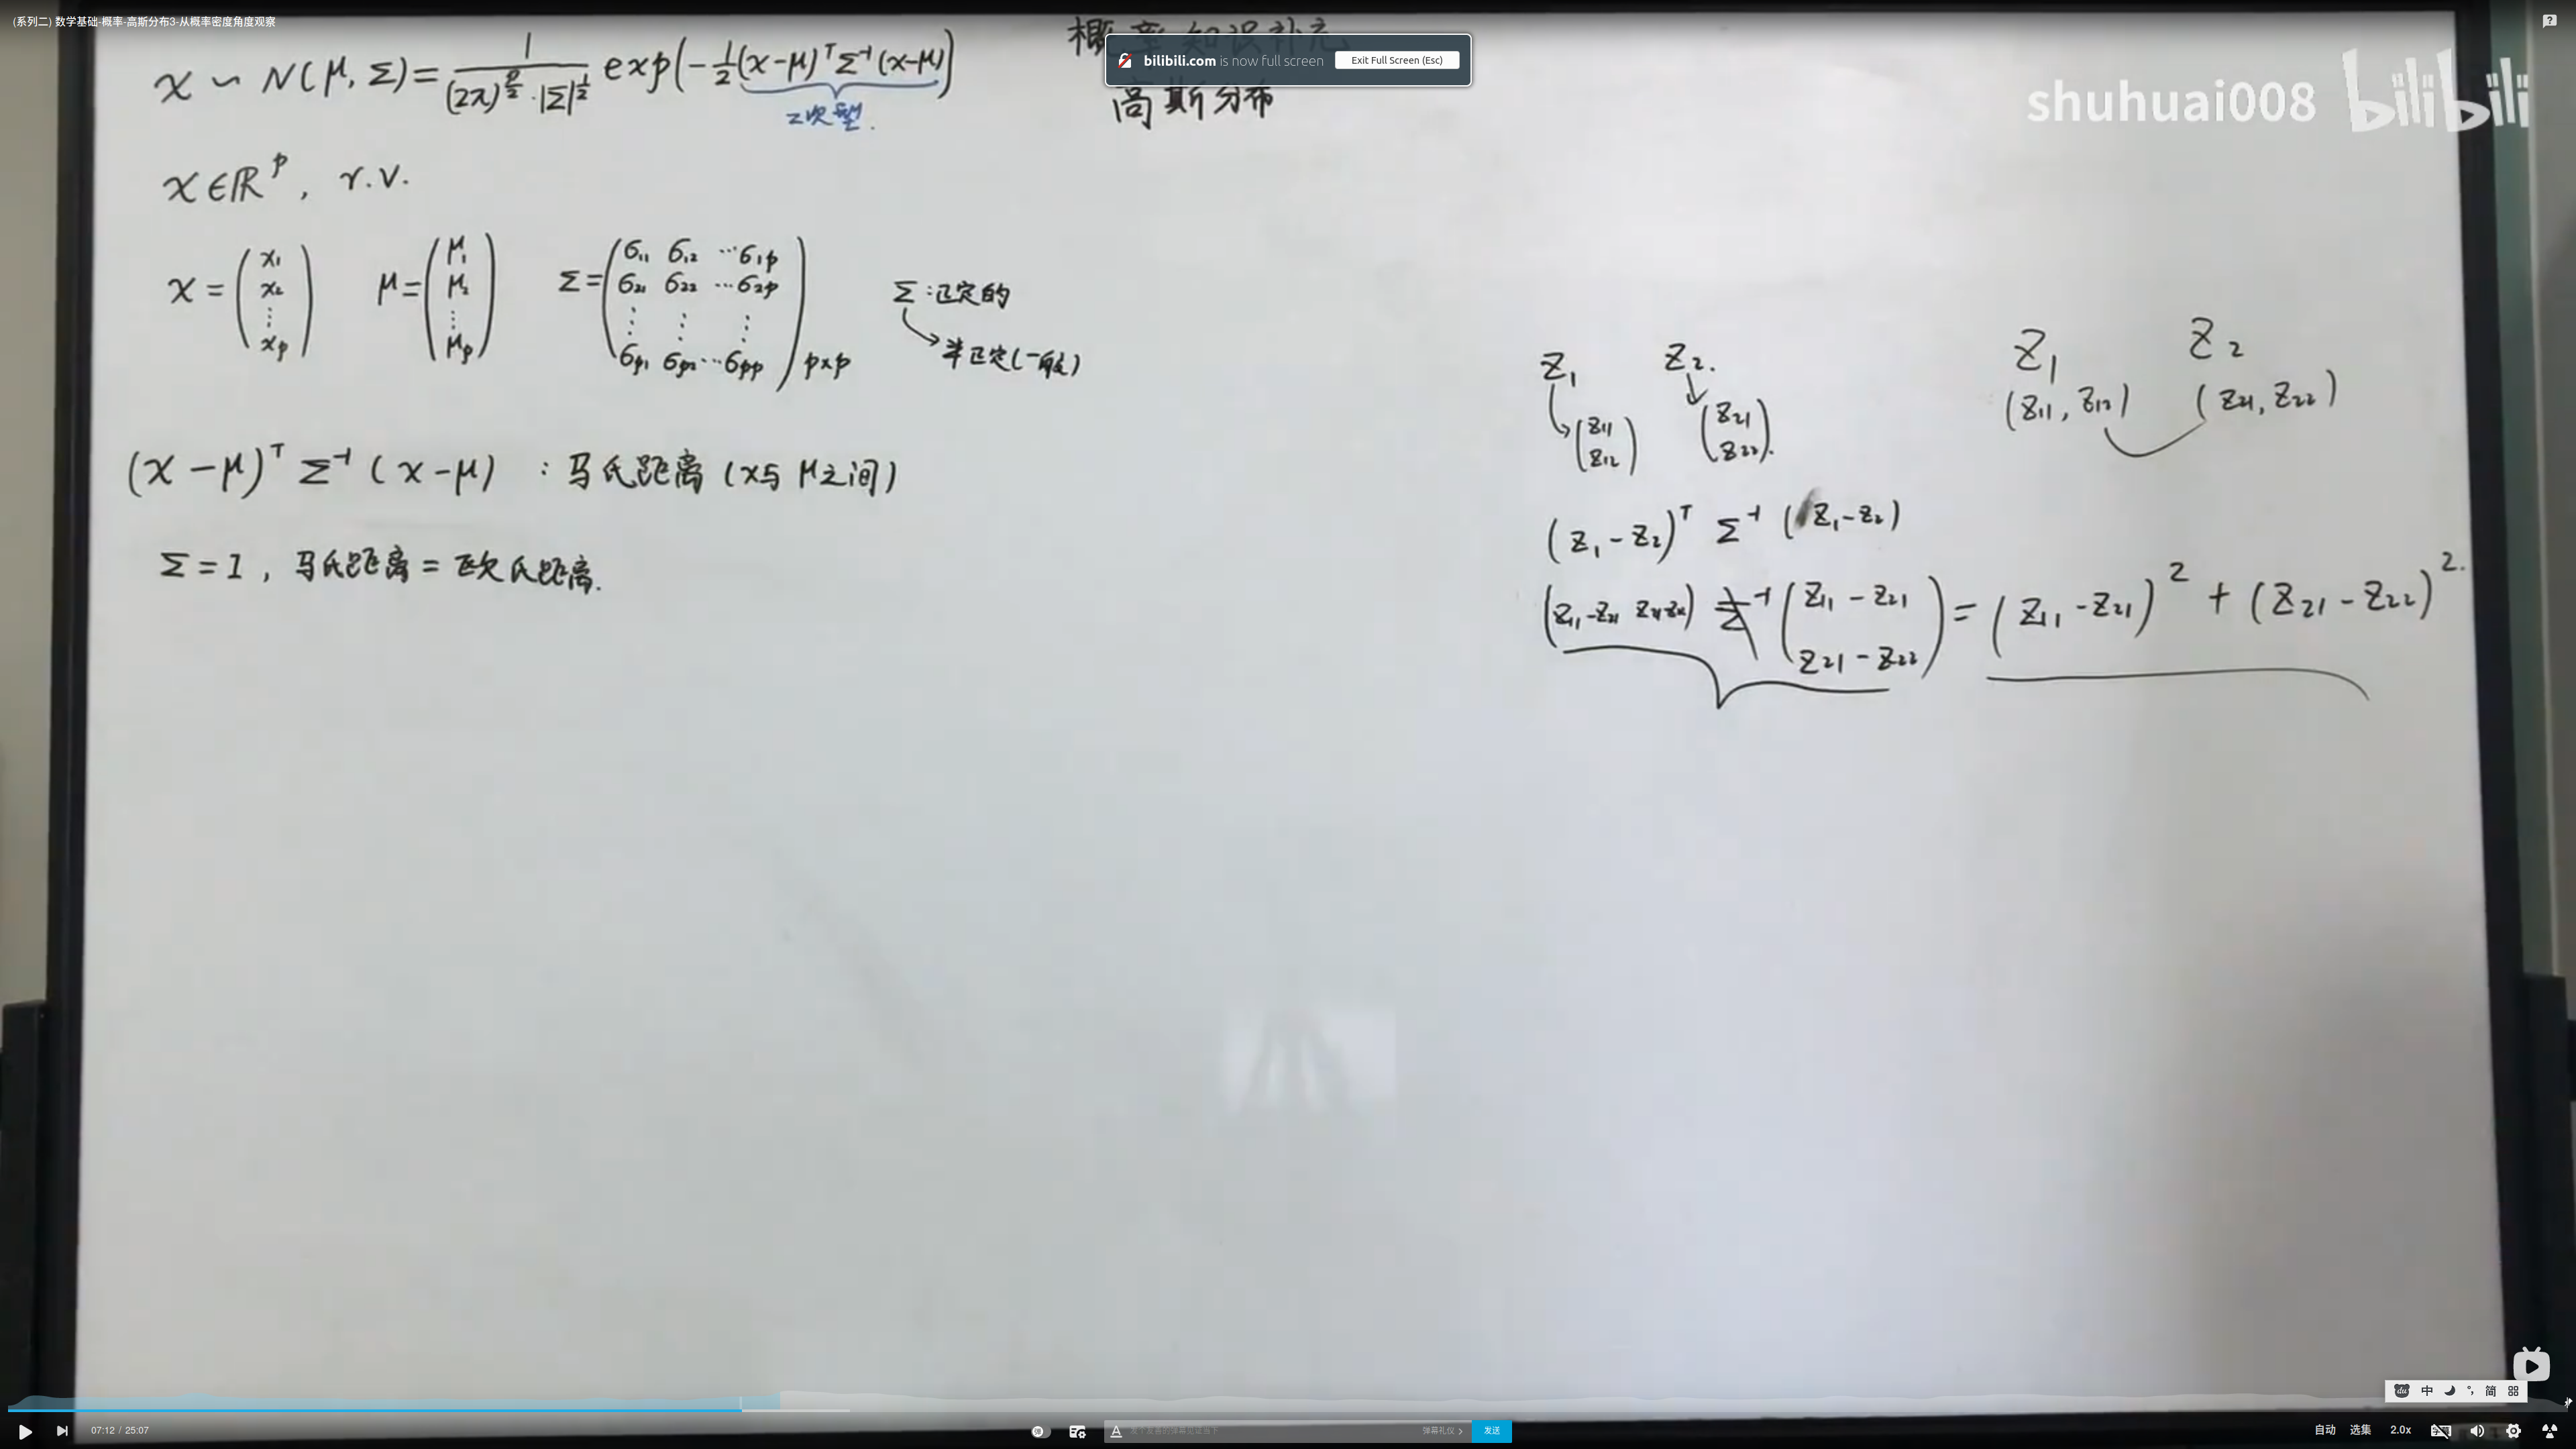 (系列二) 数学基础-概率-高斯分布3-从概率密度角度观察
bilibili.com is now full screen
Exit Full Screen (Esc)
shuhuai008 bilibili
高斯分布
x ∽ N(μ, Σ) = 1 / ((2π)^(p/2) · |Σ|^(1/2)) exp(-1/2 (x-μ)ᵀ Σ⁻¹ (x-μ))
二次型.
x ∈ ℝᵖ, r.v.
x = (x₁ x₂ ⋮ xₚ) μ = (μ₁ μ₂ ⋮ μₚ) Σ = (σ₁₁ σ₁₂ ⋯ σ₁ₚ
σ₂₁ σ₂₂ ⋯ σ₂ₚ
⋮ ⋮ ⋮
σₚ₁ σₚ₂ ⋯ σₚₚ) p×p
Σ : 正定的
半正定(一般)
(x-μ)ᵀ Σ⁻¹ (x-μ) : 马氏距离 (x与μ之间)
Σ = I, 马氏距离 = 欧氏距离.
z₁ z₂.
(z₁₁ z₁₂) (z₂₁ z₂₂).
z₁ z₂
(z₁₁, z₁₂) (z₂₁, z₂₂)
(z₁ - z₂)ᵀ Σ⁻¹ (z₁ - z₂)
Σ⁻¹ (z₁₁ - z₂₁
z₂₁ - z₂₂) = (z₁₁ - z₂₁)² + (z₂₁ - z₂₂)².
中 简
07:12 / 25:07
弹幕礼仪 >
发送
自动 选集 2.0x